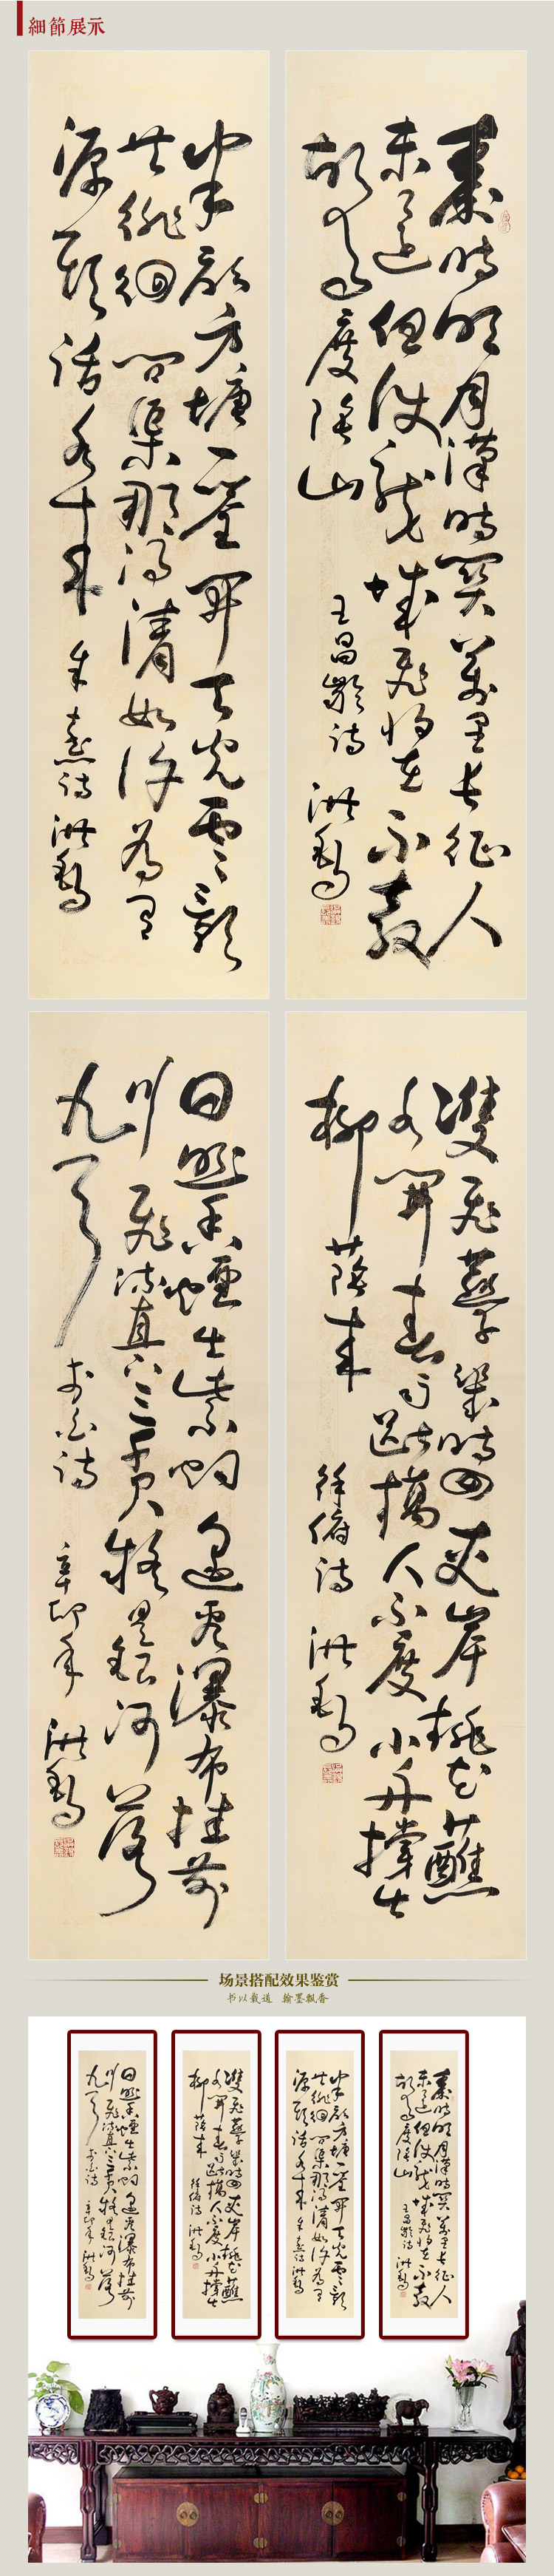 細節展示
秦時明月漢時關萬里長征人
未還但使龍城飛將在不教
胡馬度陰山
王昌齡詩 洪
半畝方塘一鑒開天光雲影
共徘徊問渠那得清如許為有
源頭活水來
朱熹詩 洪
雙飛燕子幾時回夾岸桃花蘸
水開春雨斷橋人不度小舟撐出
柳蔭來
徐俯詩 洪
日照香爐生紫烟遙看瀑布挂前
川飛流直下三千尺疑是銀河落
九天
李白詩 辛卯年 洪
场景搭配效果鉴赏
书以载道 翰墨飘香